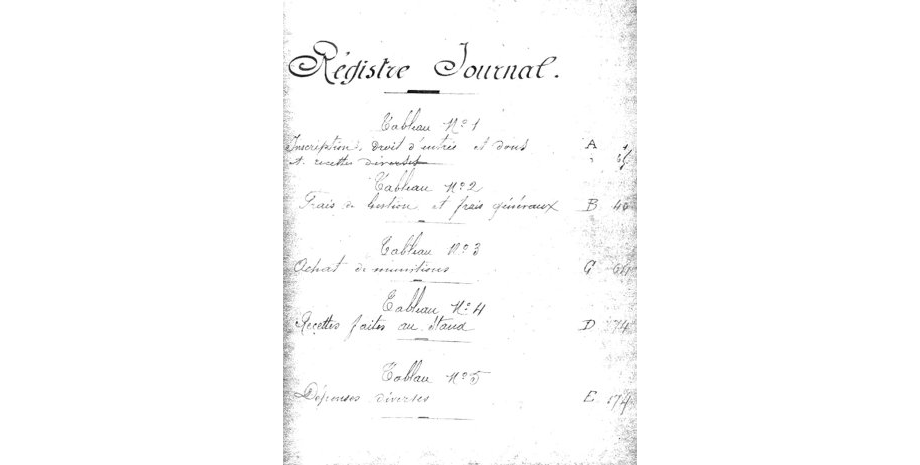 Régistre Journal.
Tableau Nº 1
Inscription, droit d'entrée et dons A 1
et recettes diverses
Tableau Nº 2
Frais de Gestion et frais généraux B 40
Tableau Nº 3
Achat de munitions C 64
Tableau Nº 4
Recettes faites au Stand D
Tableau Nº 5
Dépenses diverses E 174